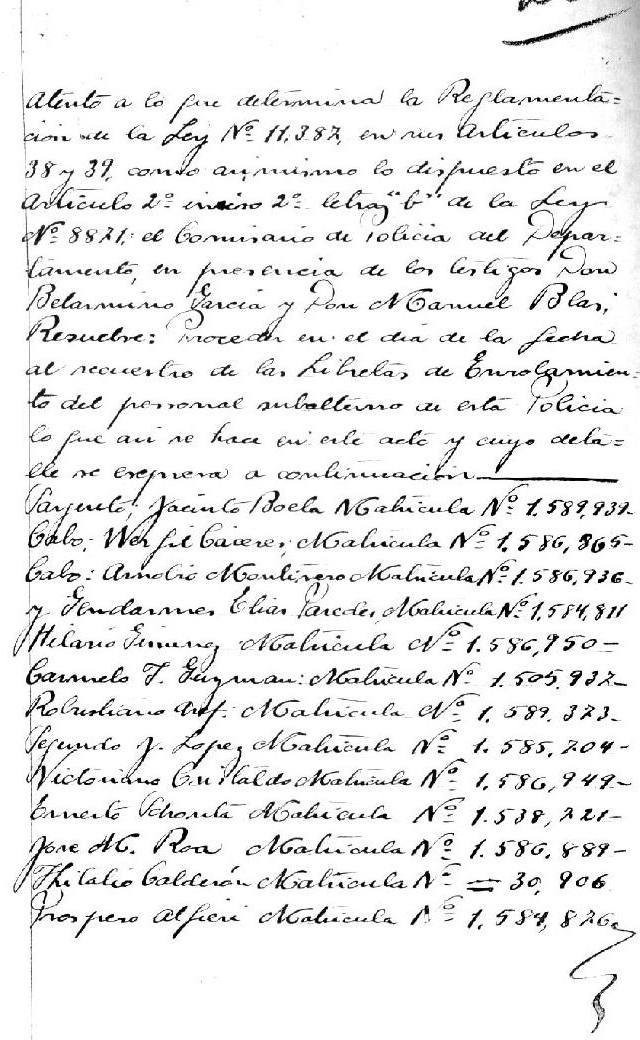 Atento a lo que determina la Reglamenta=
ción de la Ley Nº 11.387, en sus Artículos
38 y 39, como asimismo lo dispuesto en el
Artículo 2º inciso 2º letra "b" de la Ley
Nº 8871; el Comisario de Policia del Depar=
tamento, en presencia de los testigos Don
Belarmino Garcia y Don Manuel Blasi,
Resuelve: Proceder en el dia de la fecha
al secuestro de las Libretas de Enrolamien=
to del personal subalterno de esta Policia
lo que asi se hace en este acto y cuyo deta=
lle se expresa a continuación
Sargento; Jacinto Boela Matricula Nº 1.589,939-
Cabo; Caceres; Matricula Nº 1.586,865-
Cabo: Arnobio Matricula Nº 1.586,936-
y Gendarmes Elias Paredes, Matricula Nº 1.584,811
Hilario Gimenez Matricula Nº 1.586,950-
Carmelo T. Guzman: Matricula Nº 1.505,937-
Robustiano Matricula Nº 1.589,373-
Segundo J. Lopez Matricula Nº 1.585,204-
Victoriano Cristaldo Matricula Nº 1.586,949-
Ernesto Matricula Nº 1.538,221-
Jose M. Roa Matricula Nº 1.586,889-
Calderón Matricula Nº = 30,906
Prospero Alfieri Matricula Nº 1.584,826